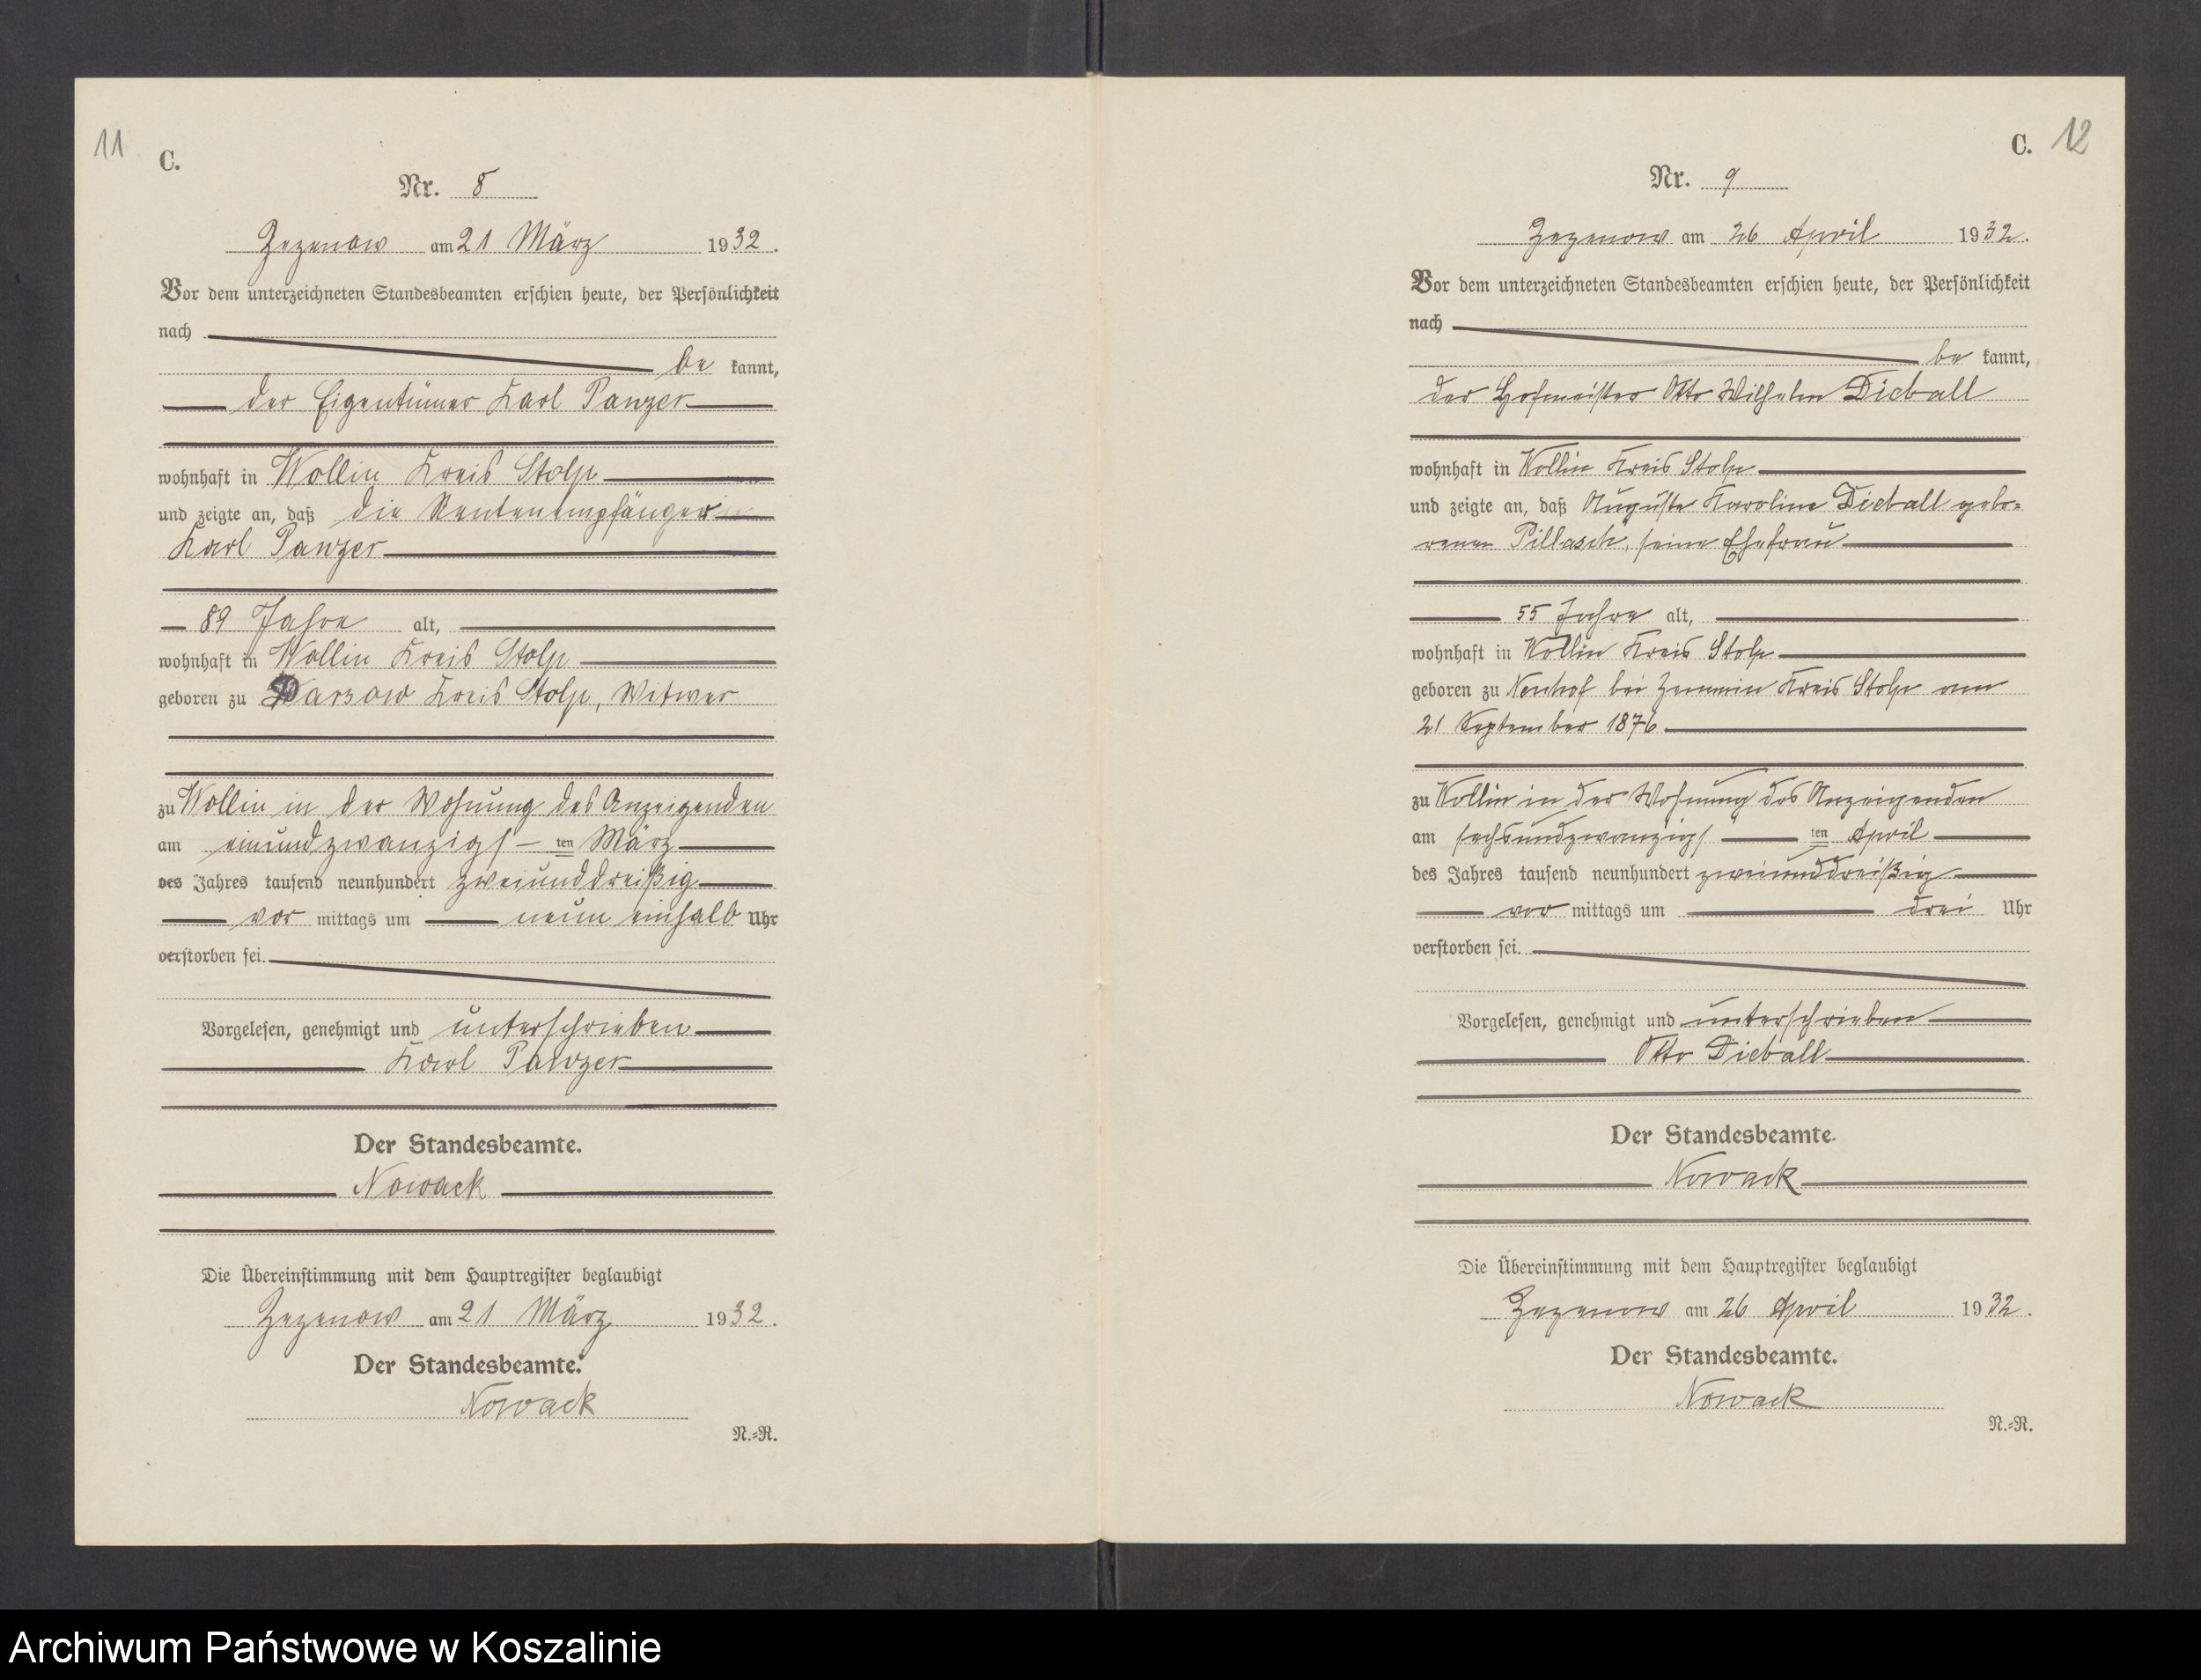 11
C.
Nr. 8
Zezenow am 21 März 1932.
Vor dem unterzeichneten Standesbeamten erschien heute, der Persönlichkeit
nach
be kannt,
der Eigentümer Karl Panzer
wohnhaft in Wollin Kreis Stolp
und zeigte an, daß die Rentenempfänger
Karl Panzer
89 Jahre alt,
wohnhaft in Wollin Kreis Stolp
geboren zu Kreis Stolp, Witwer
zu Wollin in der Wohnung des Anzeigenden
am einundzwanzigs ten März
des Jahres tausend neunhundert zweiunddreißig
vor mittags um neun einhalb Uhr
verstorben sei.
Vorgelesen, genehmigt und unterschrieben
Karl Panzer
Der Standesbeamte.
Nowack
Die Übereinstimmung mit dem Hauptregister beglaubigt
Zezenow am 21 März 1932.
Der Standesbeamte.
Nowack
N.=R.
C. 12
Nr. 9
Zezenow am 26 April 1932.
Vor dem unterzeichneten Standesbeamten erschien heute, der Persönlichkeit
nach
be kannt,
der Hofmeister Otto Wilhelm Dieball
wohnhaft in Wollin Kreis Stolp
und zeigte an, daß Auguste Karoline Dieball gebo=
renen Pillasch, seine Ehefrau
55 Jahre alt,
wohnhaft in Wollin Kreis Stolp
geboren zu Neuhof bei Zemmin Kreis Stolp am
21 September 1876
zu Wollin in der Wohnung des Anzeigenden
am sechsundzwanzigs ten April
des Jahres tausend neunhundert zweiunddreißig
vor mittags um drei Uhr
verstorben sei.
Vorgelesen, genehmigt und unterschrieben
Otto Dieball
Der Standesbeamte.
Nowack
Die Übereinstimmung mit dem Hauptregister beglaubigt
Zezenow am 26 April 1932.
Der Standesbeamte.
Nowack
N.=R.
Archiwum Państwowe w Koszalinie